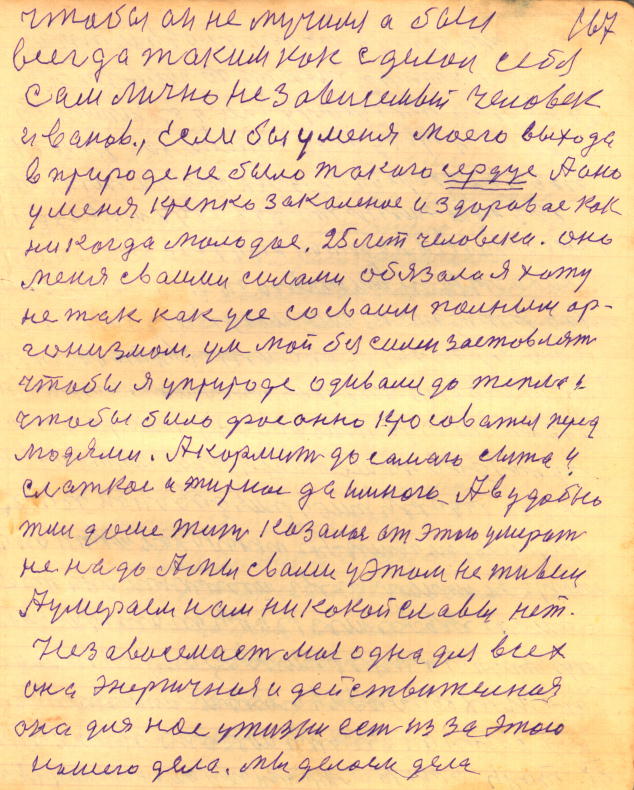 чтобы он не мучился а был 167
всегда таким как сделал себя
сам лично независемый человек
иванов., если бы у меня моего выхода
в природе не было такого сердце А оно
у меня крепко закаленое и здоровае как
никогда молодое, 25 лет человека. оно
меня сваими силами обязала я хожу
не так как усе со сваим полным ор-
ганизмом. ум мой бессилен заставлят
чтобы я уприроде одивали до тепла и
чтобы было фасонно кросоватся перед
людями. А кормит до самаго сыта и
слаткое и жирное да много. А в удобно
жилом доме жит казалос от этого умерат
не надо А мы с вами у этом не живем
А умераем нам никокой славы нет.
Незавосемаст моя одна для всех
она энергичная и действителная
она для нас ужизни ест из за этого
нашего дела. мы делаем дела